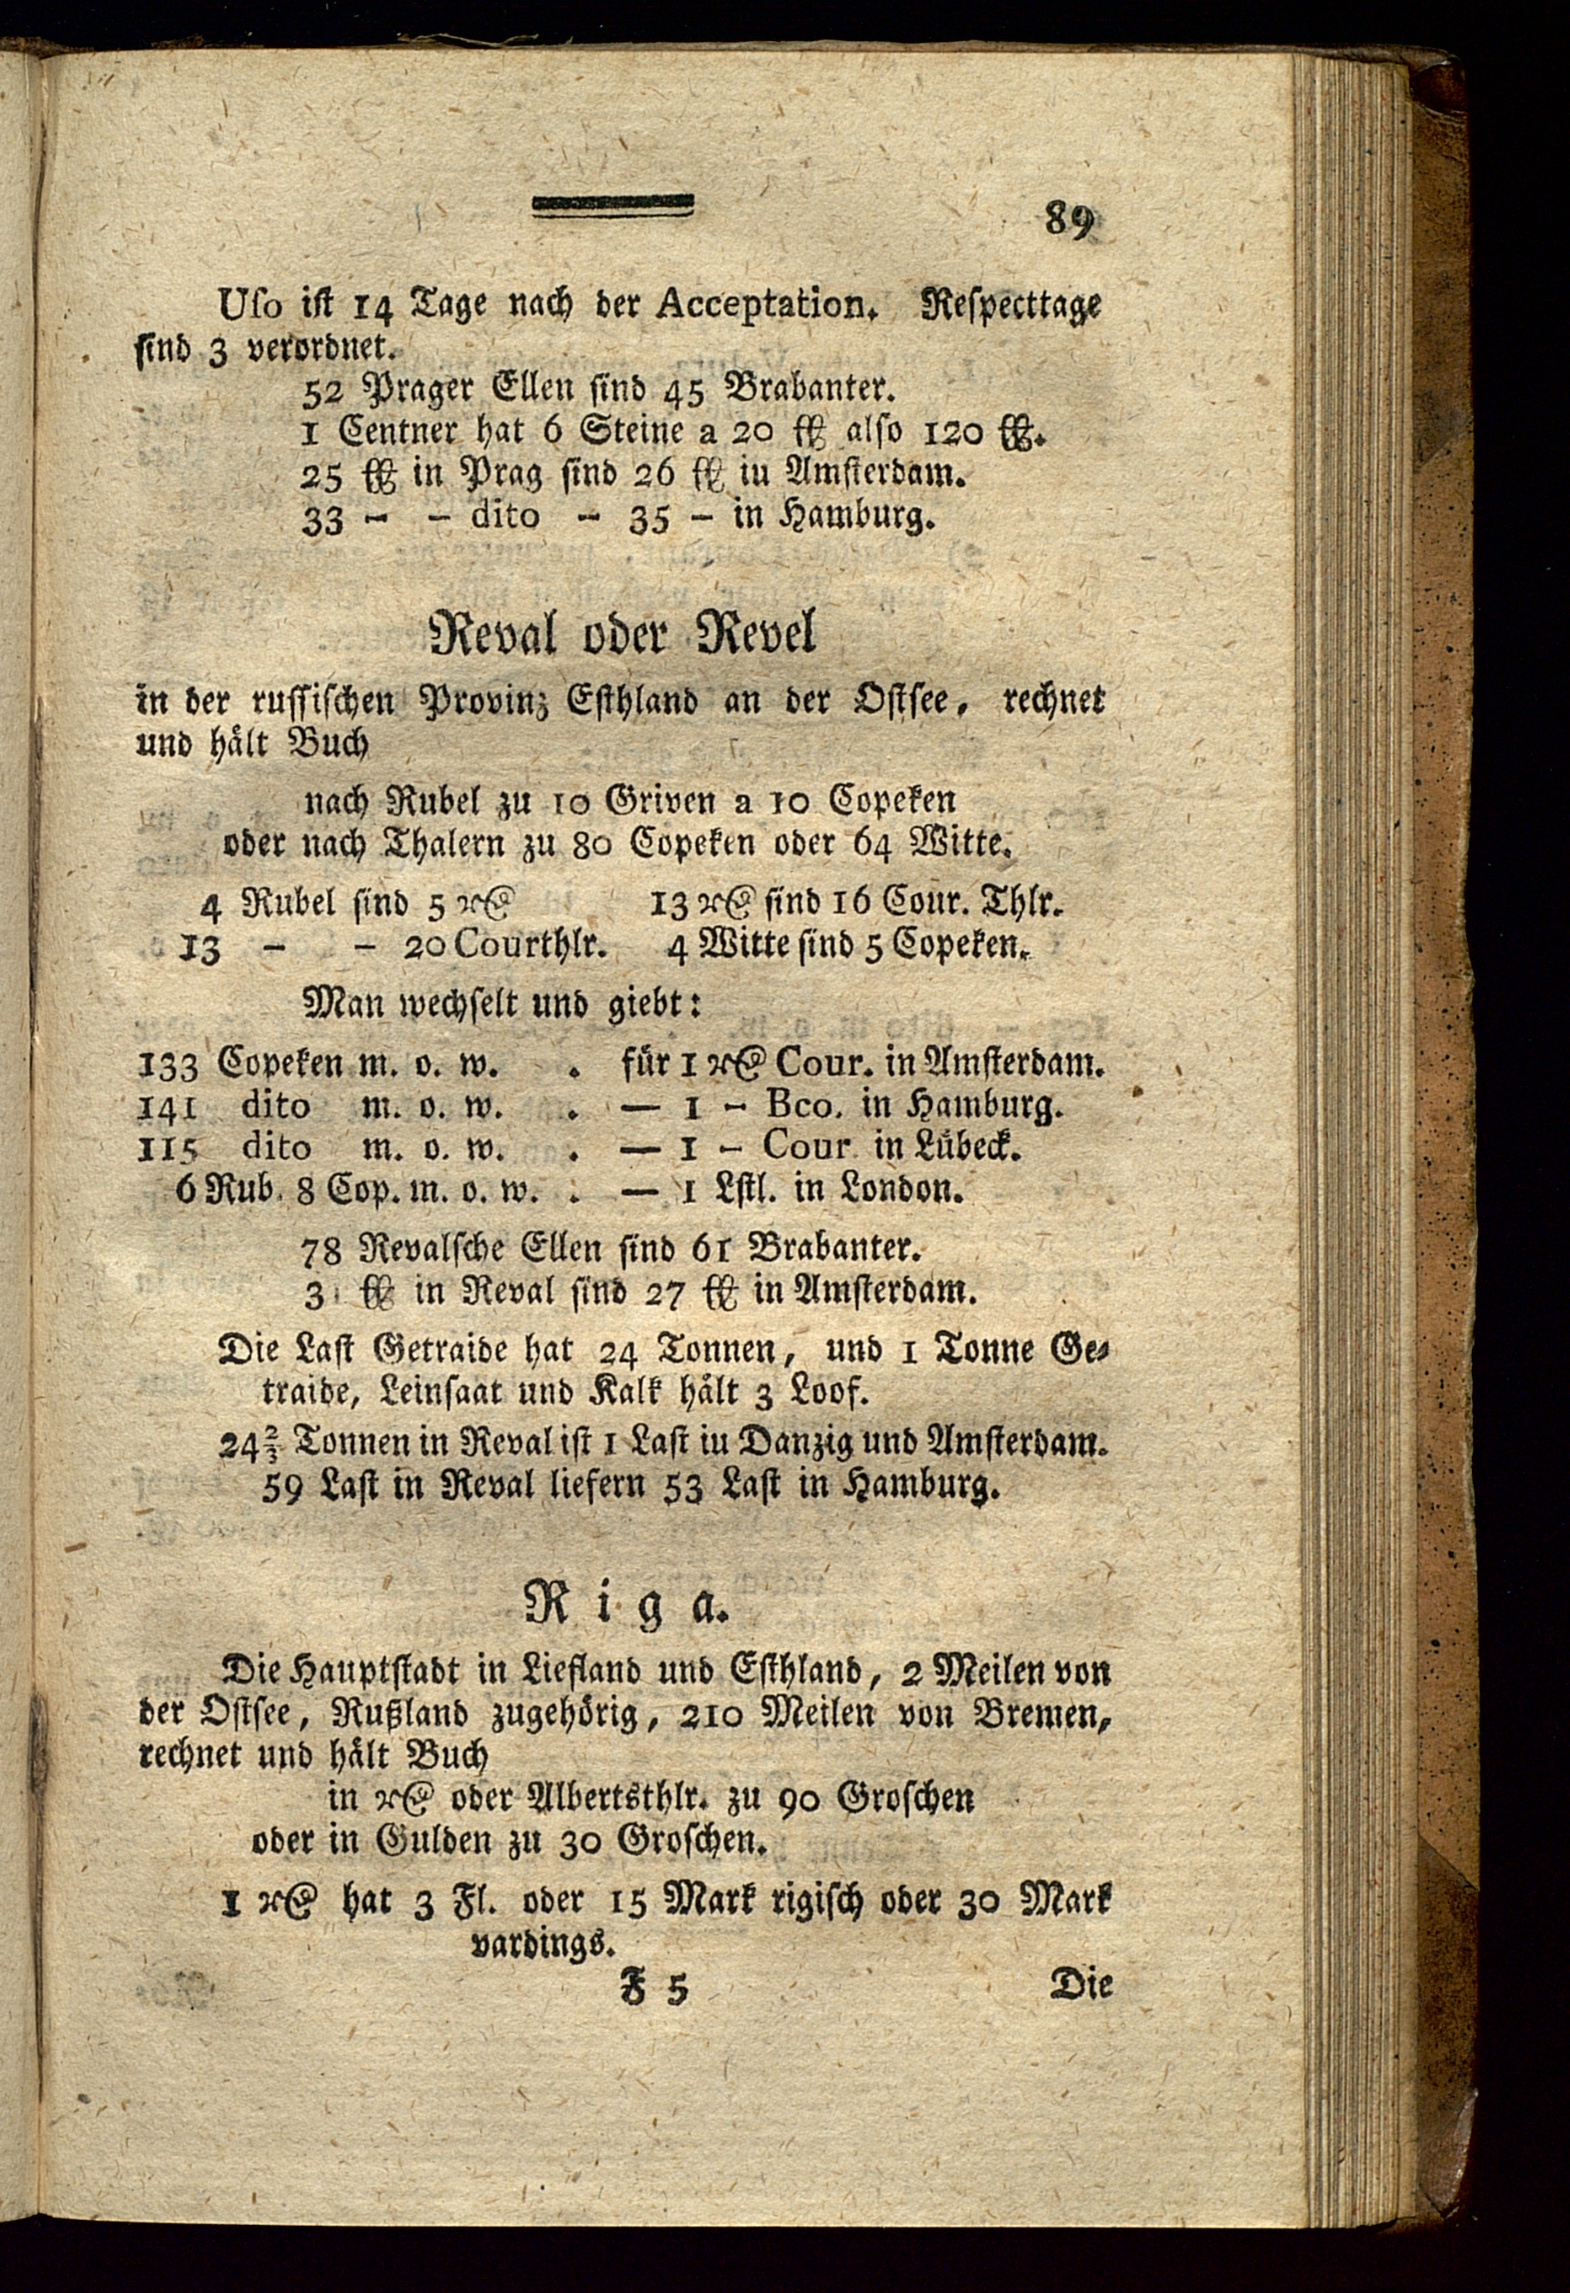 89
Uso ist 14 Tage nach der Acceptation. Respecttage
sind 3 verordnet.
52 Prager Ellen sind 45 Brabanter.
1 Centner hat 6 Steine a 20 ℔ also 120 ℔.
25 ℔ in Prag sind 26 ℔ iu Amsterdam.
33 - - dito - 35 - in Hamburg.
Reval oder Revel
in der russischen Provinz Esthland an der Ostsee, rechnet
und hält Buch
nach Rubel zu 10 Griven a 10 Copeken
oder nach Thalern zu 80 Copeken oder 64 Witte.
4 Rubel sind 5 rß 13 rß sind 16 Cour. Thlr.
13 - - 20 Courthlr. 4 Witte sind 5 Copeken.
Man wechselt und giebt:
133 Copeken m. o. w. . für 1 rß Cour. in Amsterdam.
141 dito m. o. w. . — 1 - Bco. in Hamburg.
115 dito m. o. w. . — 1 - Cour in Lübeck.
6 Rub. 8 Cop. m. o. w. . — 1 Lstl. in London.
78 Revalsche Ellen sind 61 Brabanter.
3 ℔ in Reval sind 27 ℔ in Amsterdam.
Die Last Getraide hat 24 Tonnen, und 1 Tonne Ge-
traide, Leinsaat und Kalk hält 3 Loof.
24⅔ Tonnen in Reval ist 1 Last iu Danzig und Amsterdam.
59 Last in Reval liefern 53 Last in Hamburg.
Riga.
Die Hauptstadt in Liefland und Esthland, 2 Meilen von
der Ostsee, Rußland zugehörig, 210 Meilen von Bremen,
rechnet und hält Buch
in rß oder Albertsthlr. zu 90 Groschen
oder in Gulden zu 30 Groschen.
1 rß hat 3 Fl. oder 15 Mark rigisch oder 30 Mark
vardings.
F 5 Die